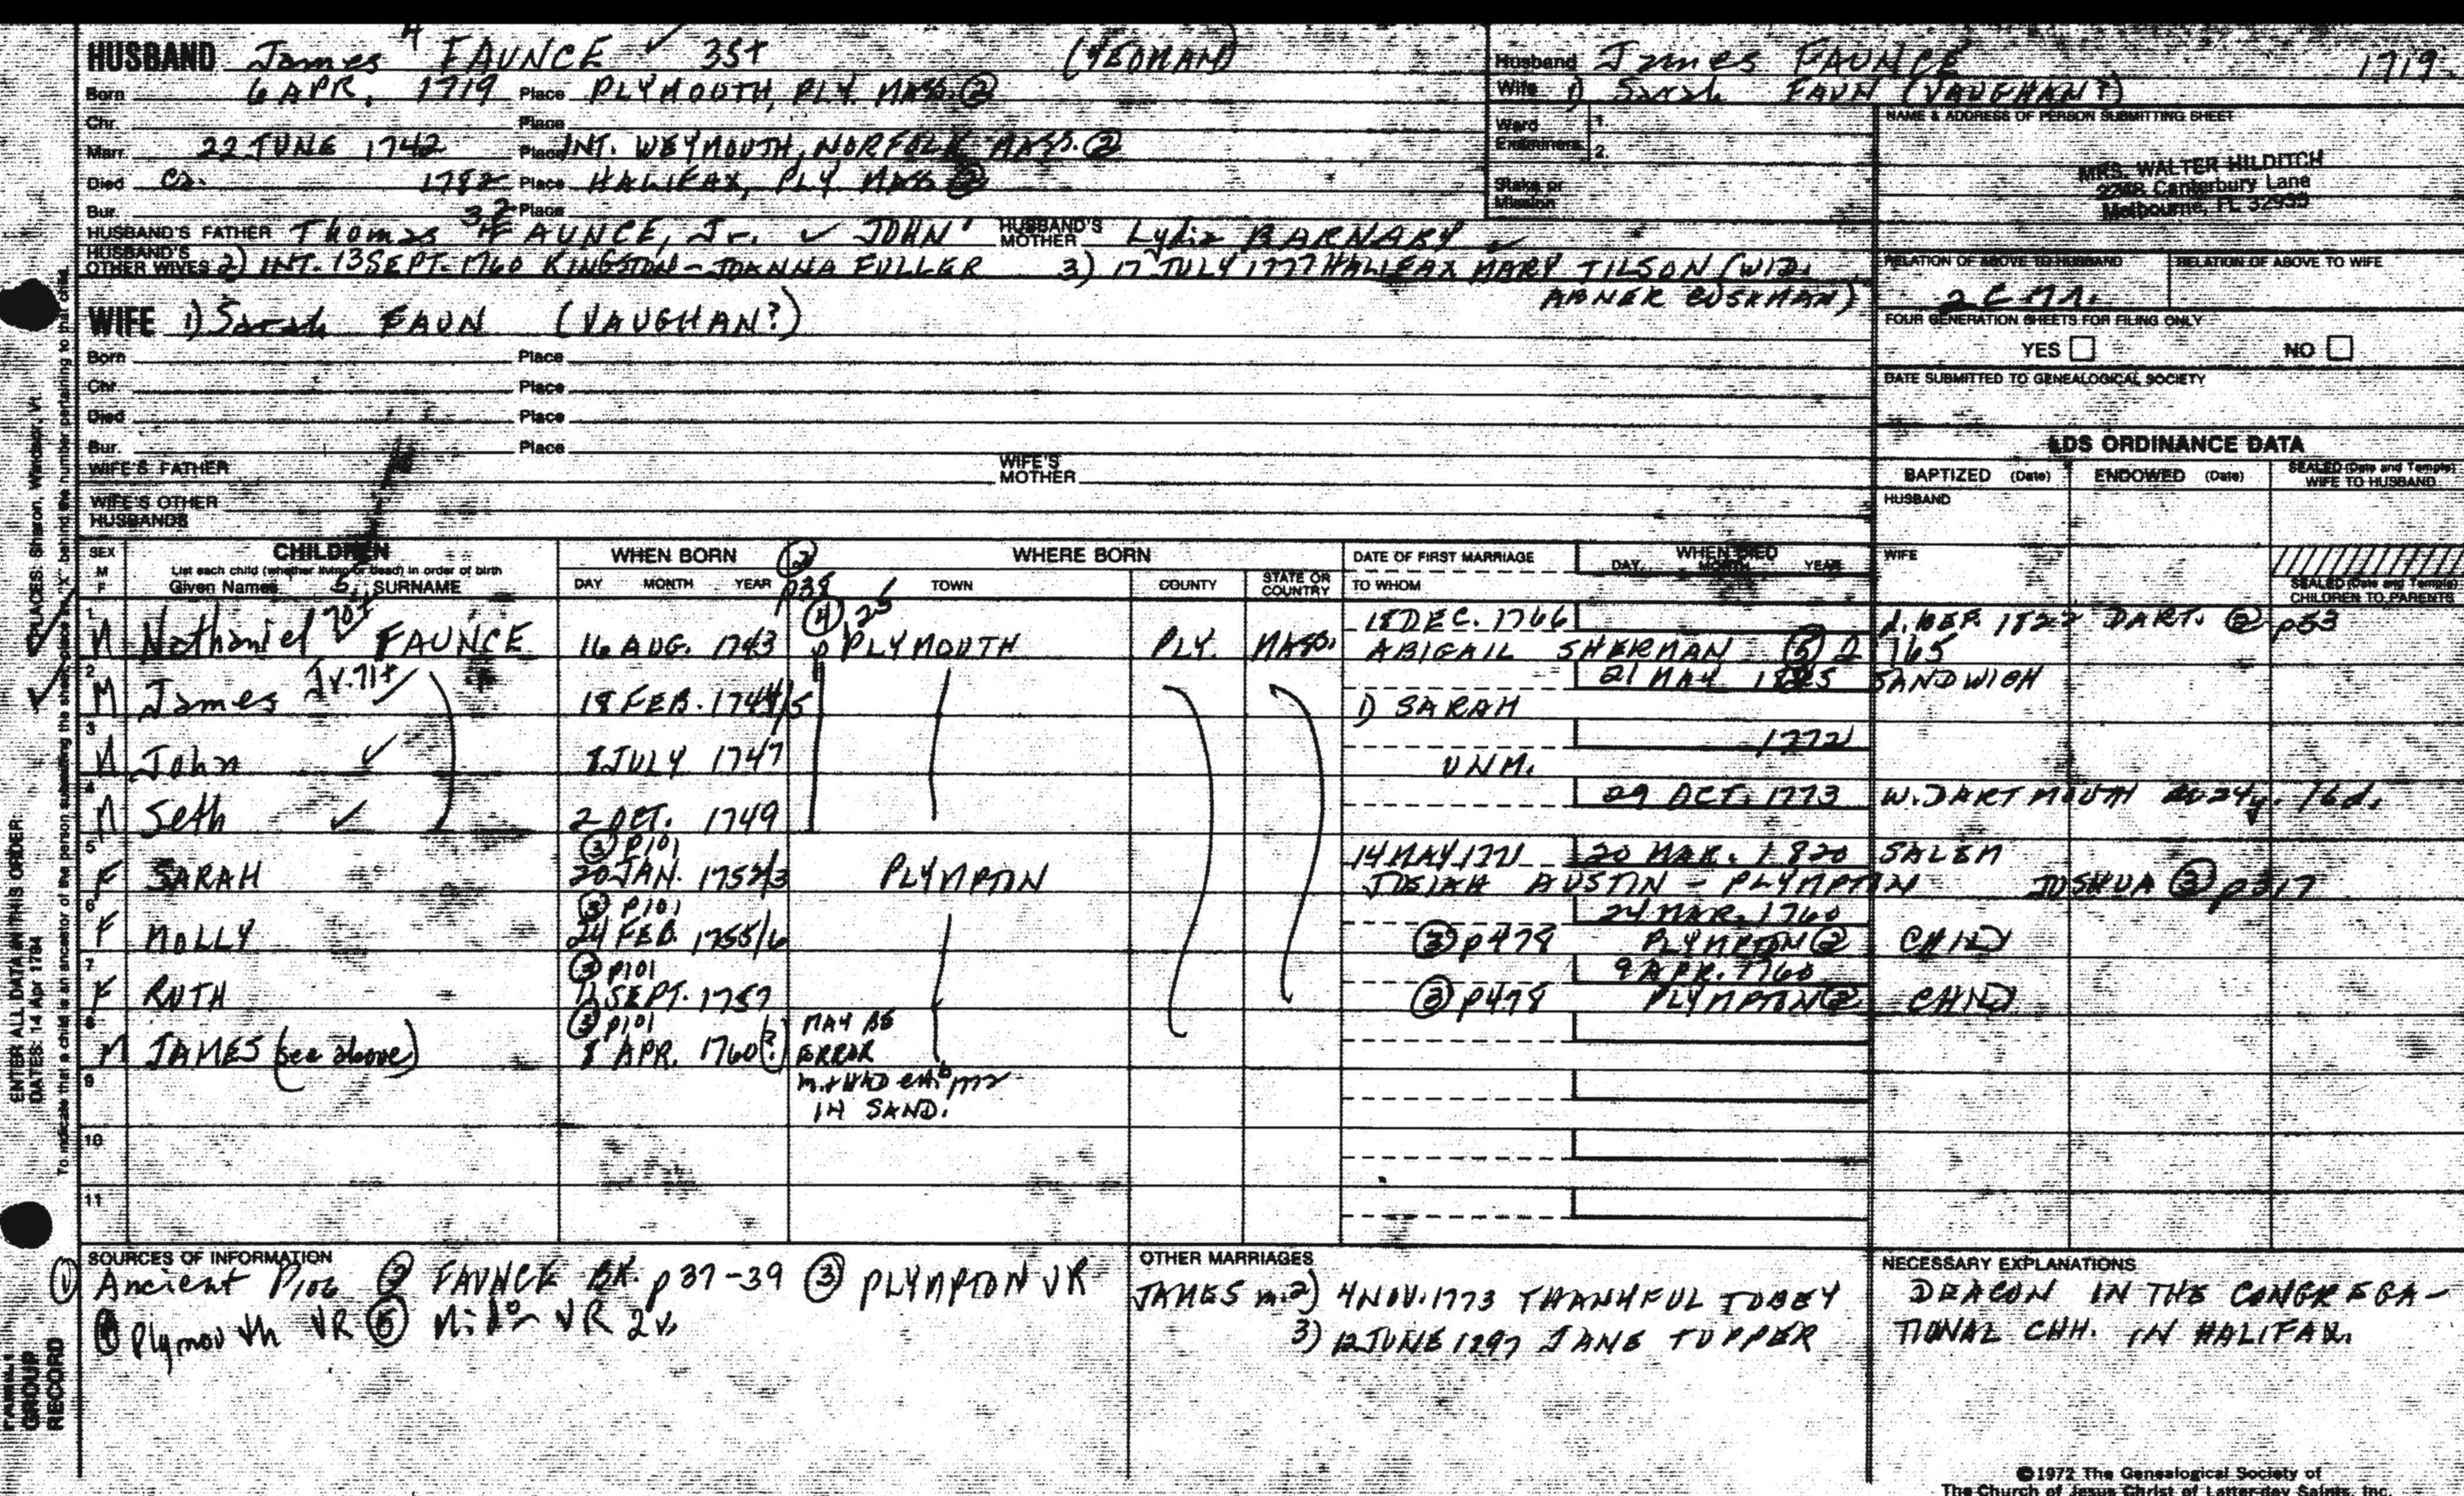 HUSBAND James 4 FAUNCE ✓ 35+ (YEOMAN)
Born 6 APR. 1719 Place PLYMOUTH, PLY. MASS. ②
Chr. Place
Marr. 22 JUNE 1742 Place INT. WEYMOUTH, NORFOLK MASS. ②
Died Ca. 1782 Place HALIFAX, PLY MASS ②
Bur. Place
HUSBAND'S FATHER Thomas 3 2 FAUNCE, Jr. ✓ JOHN' HUSBAND'S MOTHER Lydia BARNABY ✓
HUSBAND'S OTHER WIVES 2) INT. 13 SEPT. 1760 KINGSTON - JOANNA FULLER 3) 17 JULY 1777 HALIFAX MARY TILSON (WID.
ABNER CUSHMAN)
WIFE 1) Sarah FAUN (VAUGHAN?)
Born Place
Chr. Place
Died Place
Bur. Place
WIFE'S FATHER WIFE'S MOTHER
WIFE'S OTHER HUSBANDS
Husband James FAUNCE 1719
Wife 1) Sarah FAUN (VAUGHAN?)
Ward Examiners 1. 2.
Stake or Mission
NAME & ADDRESS OF PERSON SUBMITTING SHEET
MRS. WALTER HILDITCH
Canterbury Lane
Melbourne, FL 32935
RELATION OF ABOVE TO HUSBAND RELATION OF ABOVE TO WIFE
FOUR GENERATION SHEETS FOR FILING ONLY
YES NO
DATE SUBMITTED TO GENEALOGICAL SOCIETY
LDS ORDINANCE DATA
BAPTIZED (Date) ENDOWED (Date) SEALED (Date and Temple) WIFE TO HUSBAND
HUSBAND
WIFE
SEALED (Date and Temple) CHILDREN TO PARENTS
SEX M F CHILDREN List each child (whether living or dead) in order of birth Given Names SURNAME
WHEN BORN DAY MONTH YEAR p38
WHERE BORN TOWN COUNTY STATE OR COUNTRY
DATE OF FIRST MARRIAGE TO WHOM
WHEN DIED DAY MONTH YEAR
1 M Nathaniel 70+ FAUNCE 16 AUG. 1743 ④ PLYMOUTH PLY. MASS. 18 DEC. 1766 ABIGAIL SHERMAN ⑤ 2 165 d. BEF. 1822 DART. ② p53
2 M James Jr. 71+ ✓ 18 FEB. 1744/5 1) SARAH 21 MAY SANDWICH
3 M John ✓ 8 JULY 1747 UNM. 1772
4 M Seth ✓ 2 OCT. 1749 29 OCT. 1773 W. DARTMOUTH 24y. 16d.
5 F SARAH ③ P101 20 JAN. 1752/3 PLYMPTON 14 MAY 1771 JOSIAH AUSTIN - PLYMPTON JOSHUA ③ p317 20 MAR. 1820 SALEM
6 F MOLLY ③ P101 24 FEB. 1755/6 ③ p478 24 MAR. 1760 PLYMPTON ② CHILD
7 F RUTH ③ P101 SEPT. 1757 ③ p478 9 APR. 1760 PLYMPTON ② CHILD
8 M JAMES (see above) ③ P101 8 APR. 1760 (?) MAY BE
ERROR
IN SAND.
9
10
11
SOURCES OF INFORMATION
① Ancient P106 ② FAUNCE BK. p 37-39 ③ PLYMPTON VR
④ Plymouth VR ⑤ VR 2v.
OTHER MARRIAGES
JAMES m. 2) 4 NOV. 1773 THANKFUL TOBEY
3) 12 JUNE 1797 JANE TUPPER
NECESSARY EXPLANATIONS
DEACON IN THE CONGREGA-
TIONAL CHH. IN HALIFAX.
ENTER ALL DATA IN THIS ORDER:
PLACES: Sharon, Windsor, Vt
DATES: 14 Apr 1794
To indicate that a child is an ancestor of the person submitting the sheet, place an "X" behind the number pertaining to that child.
FAMILY GROUP RECORD
©1972 The Genealogical Society of
The Church of Jesus Christ of Latter-day Saints, Inc.